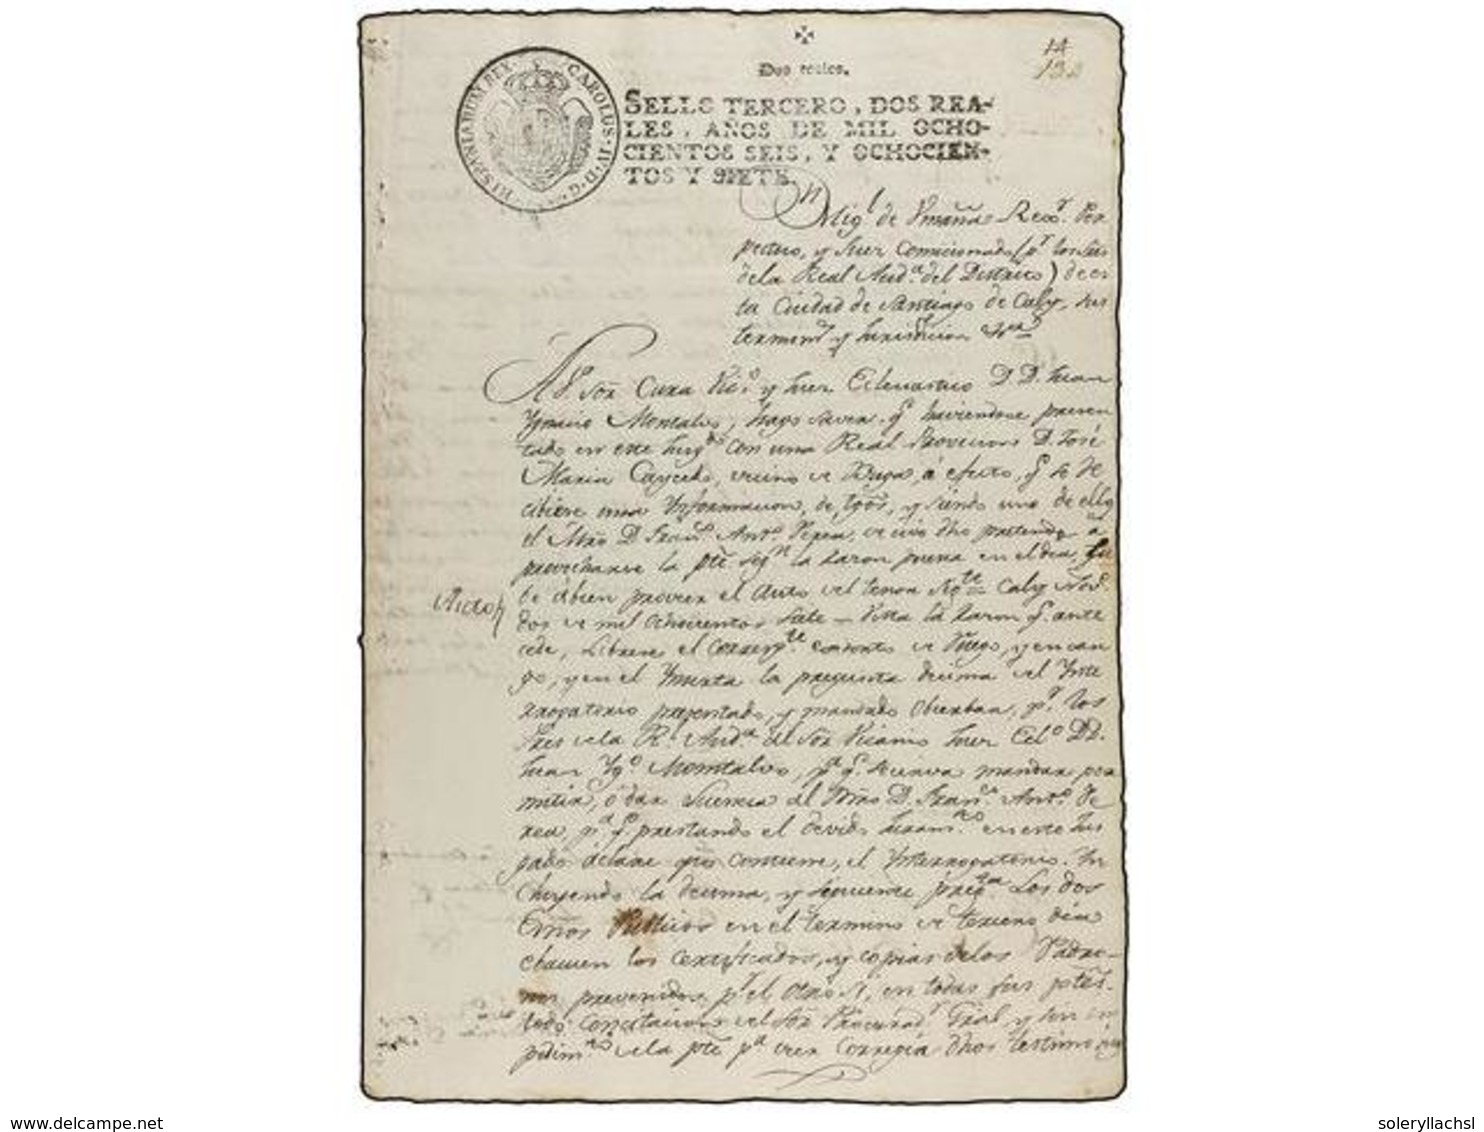 14
132
Dos reales.
HISPANIARUM REX CAROLUS IV D G
SELLO TERCERO, DOS REA-
LES, AÑOS DE MIL OCHO-
CIENTOS SEIS, Y OCHOCIEN-
TOS Y SIETE.
Dn Migl de Umaña Rexr Per
petuo, y Juez Comicionado (pr los Sres
dela Real Auda del Districto) de es
ta Ciudad de Santiago de Caly, sus
termins y Jurisdiccion
Al Sor Cura Vico y Juez Eclesiastico D.D. Juan
Ygnacio Montalvo, hago saver qe haviendose presen
tado en este Juzgdo con una Real Provicion D. José
Maria Caycedo, vecino de Buga, á efecto, qe se re
cibiere una Ynformacion de tgos, y siendo uno de ellos
el Mro D. Franco Anto
provecharse la pte segn la razon puesta en el dia,
be ábien proveer el Auto del tenor sigte Caly
dos de mil ochocientos siete Vista la razon qe ante
cede, Librese el correspte
go, y en el Ynserta la pregunta decima del Ynte
rrogatorio presentado, y mandado Obserban, pr los
Sres dela Rl Auda al Sor Vicario Juez Eclo DD.
Juan Ygo Montalvo, pa qe se sirva mandar per
mitir, ó dar licencia al Mro D. Franco Anto
rea, pa qe prestando el devido Juramto en este Juz
gado declare
cluyendo la decima, y siguiente pregta Los dos
Enos Publicos en el termino de tercero dia
los certificados, y copias delos Padro-
nes prevenidos pr el Otro si, en todas sus ptes
todo con citacion del Sor Procurador Gral y sin im
pedimto dela pte pa
Auto